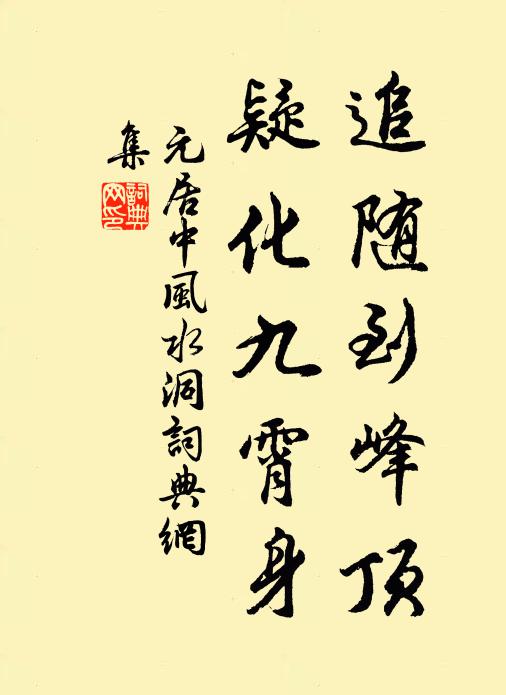 追随到峰顶
疑化九霄身
元居中風水洞詞典網
集
詞典
网印